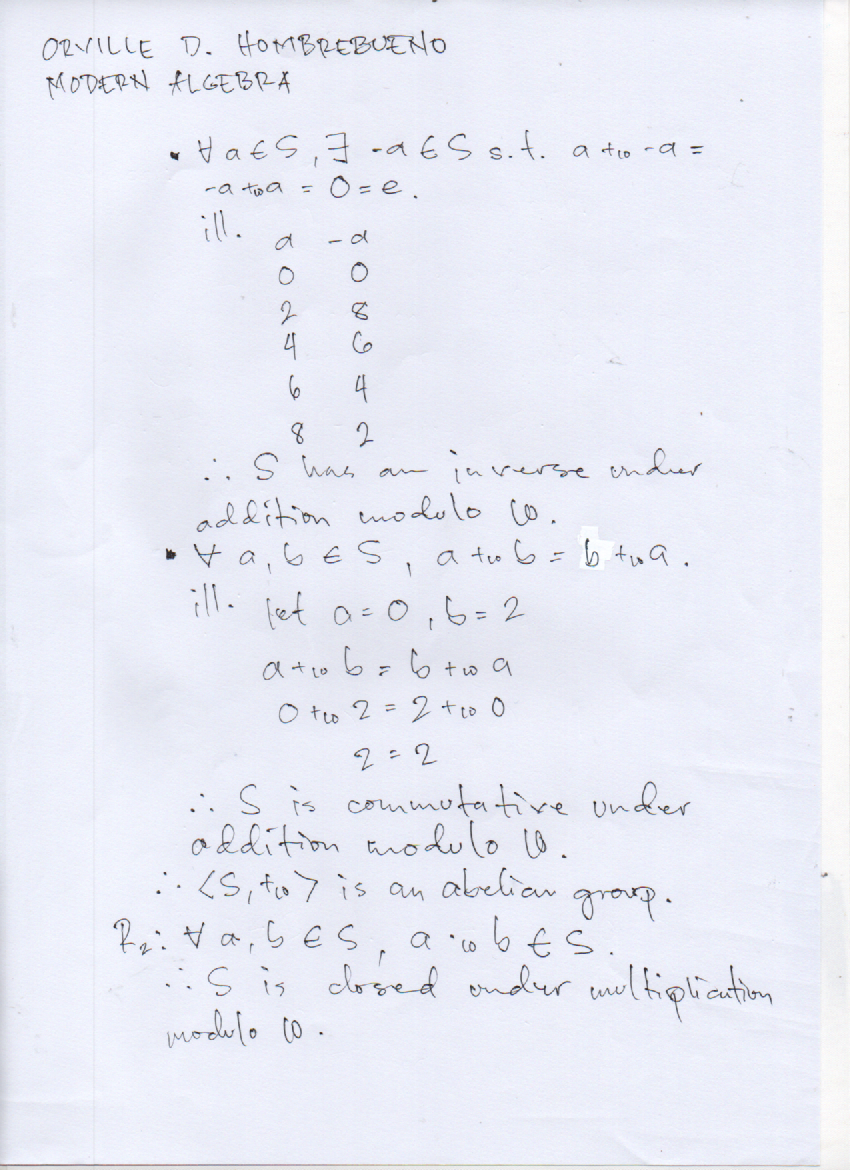 ORVILLE D. HOMBREBUENO
MODERN ALGEBRA
• ∀ a ∈ S, ∃ -a ∈ S s.t. a +₁₀ -a =
-a +₁₀ a = 0 = e.
ill.
a -a
0 0
2 8
4 6
6 4
8 2
∴ S has an inverse under
addition modulo 10.
• ∀ a, b ∈ S, a +₁₀ b = b +₁₀ a.
ill. let a = 0, b = 2
a +₁₀ b = b +₁₀ a
0 +₁₀ 2 = 2 +₁₀ 0
2 = 2
∴ S is commutative under
addition modulo 10.
∴ ⟨S, +₁₀⟩ is an abelian group.
R₂: ∀ a, b ∈ S, a ·₁₀ b ∈ S.
∴ S is closed under multiplication
modulo 10.